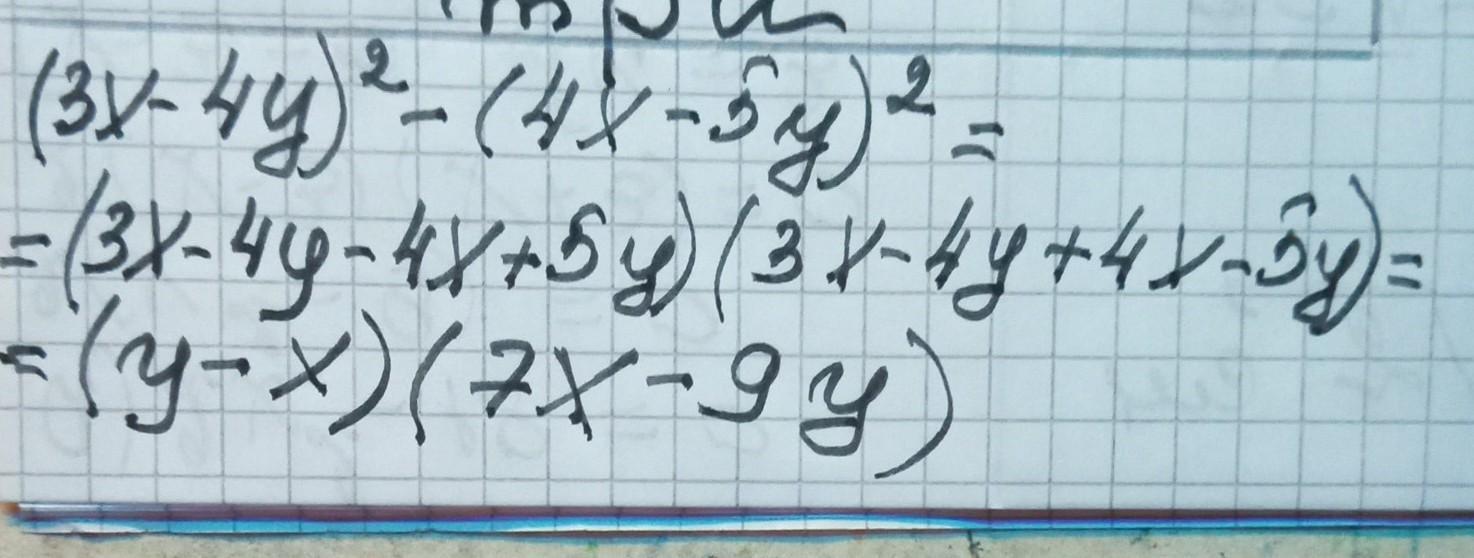 (3x-4y)²-(4x-5y)²=
=(3x-4y-4x+5y)(3x-4y+4x-5y)=
=(y-x)(7x-9y)